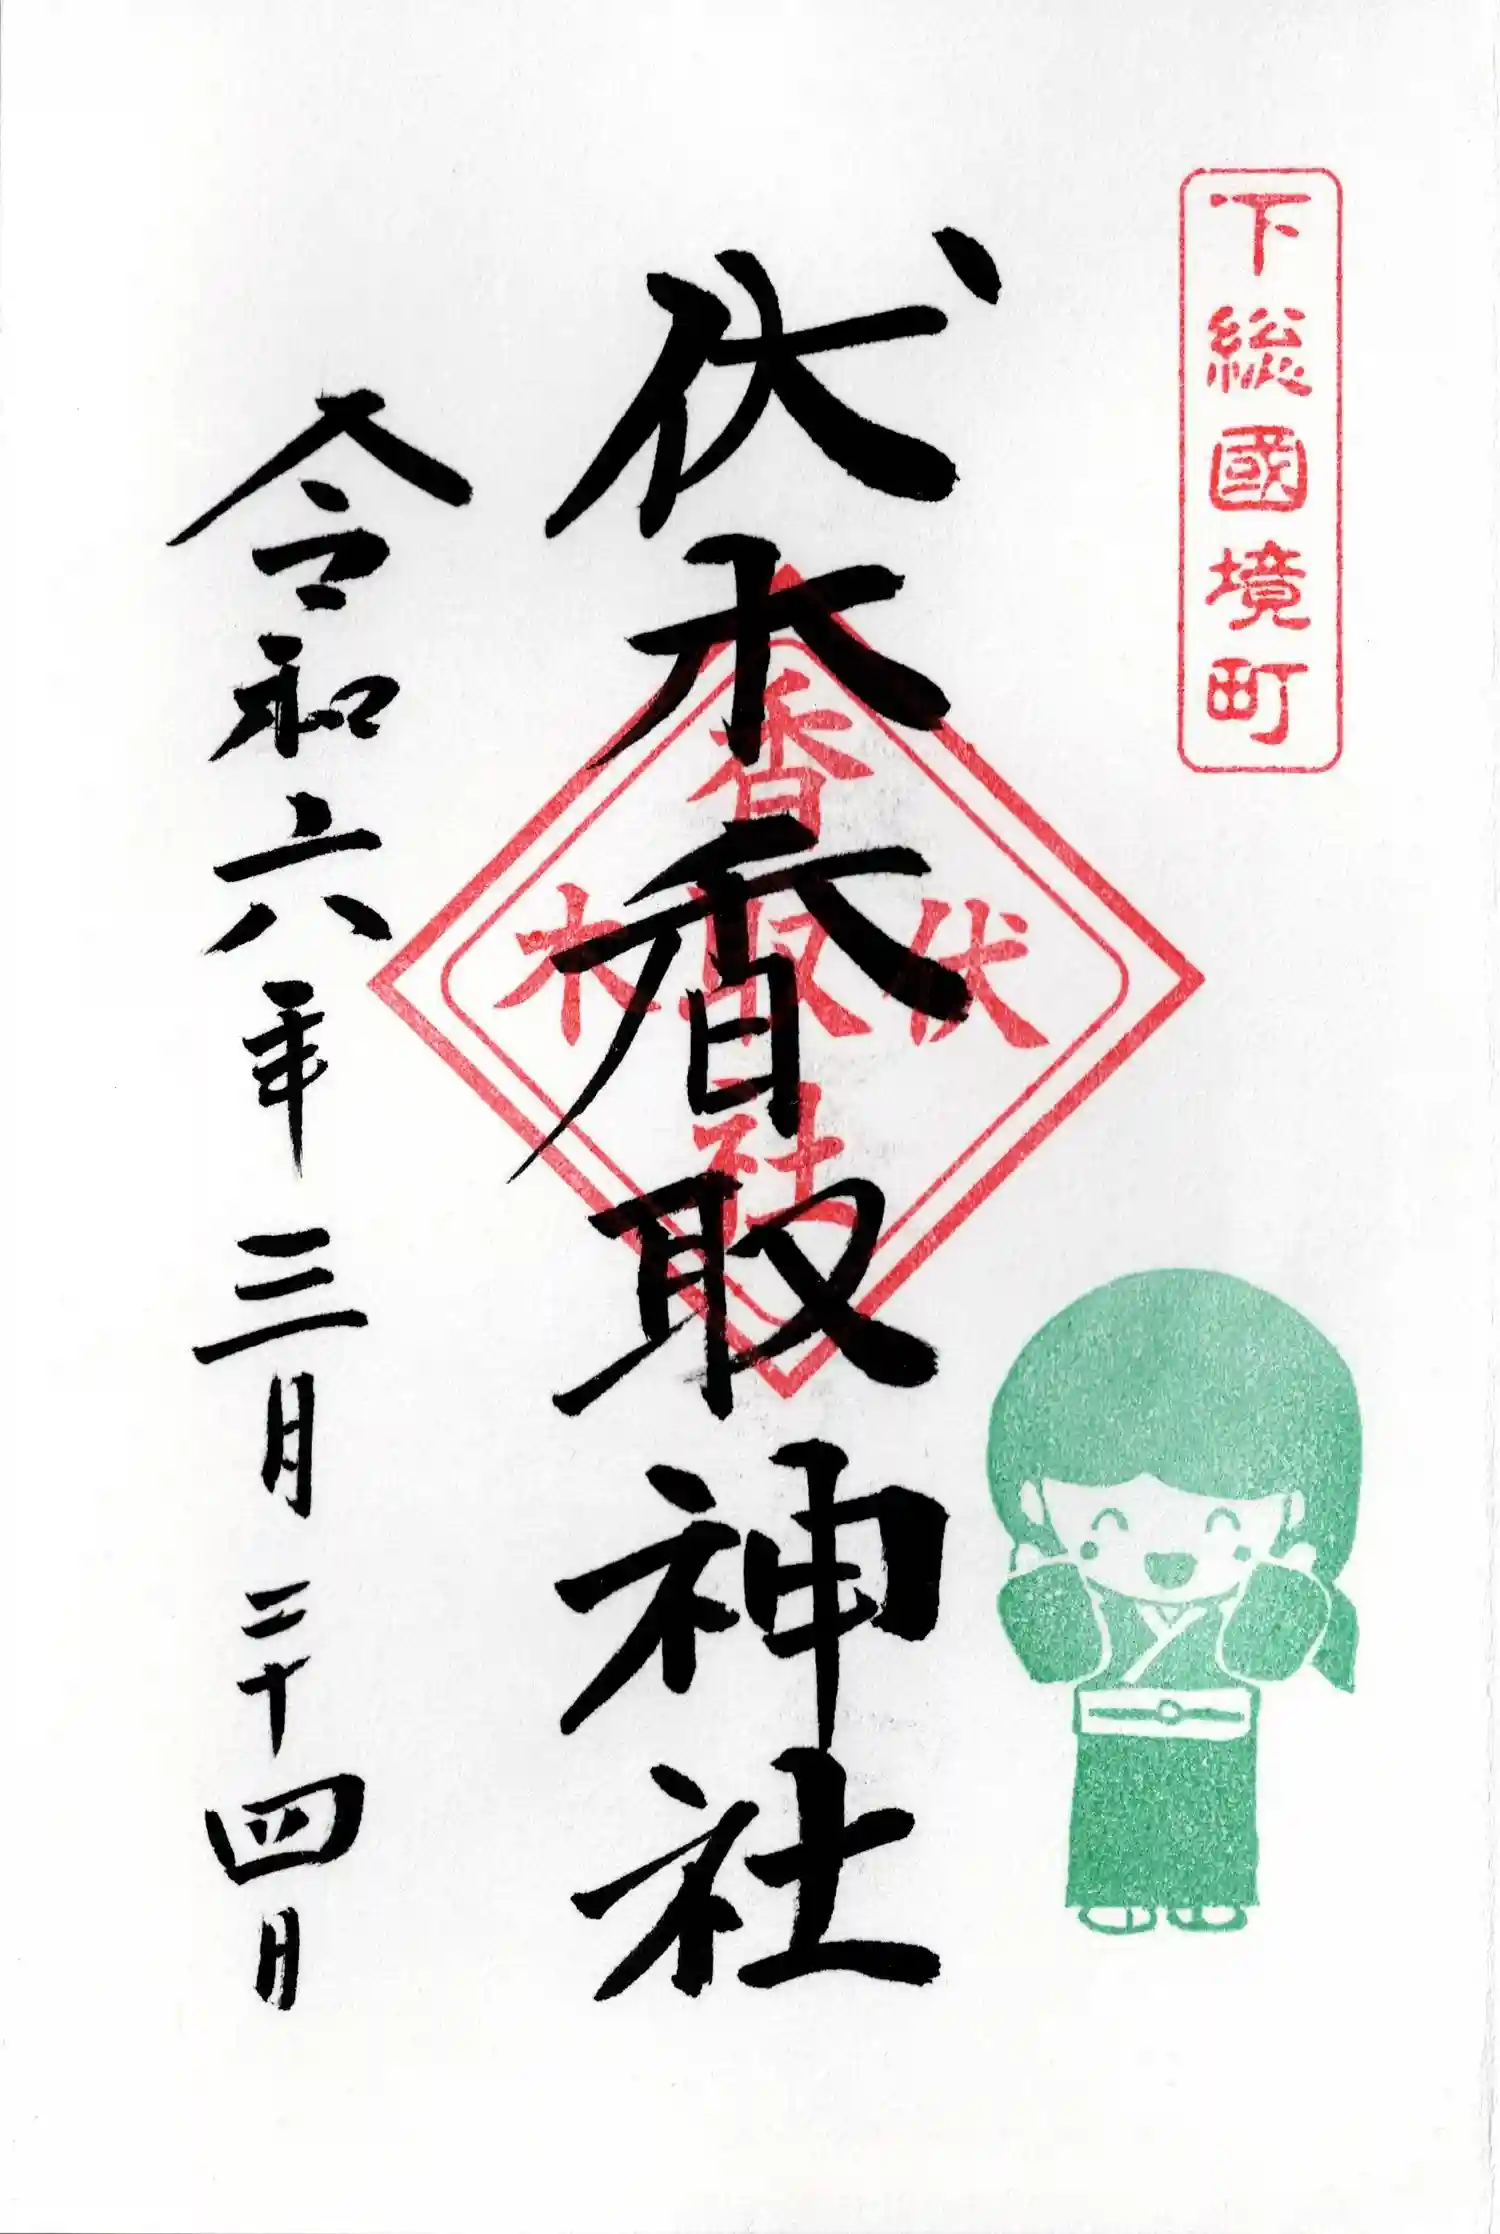 下総國境町
伏木香取神社
香取社
伏木
令和六年三月二十四日